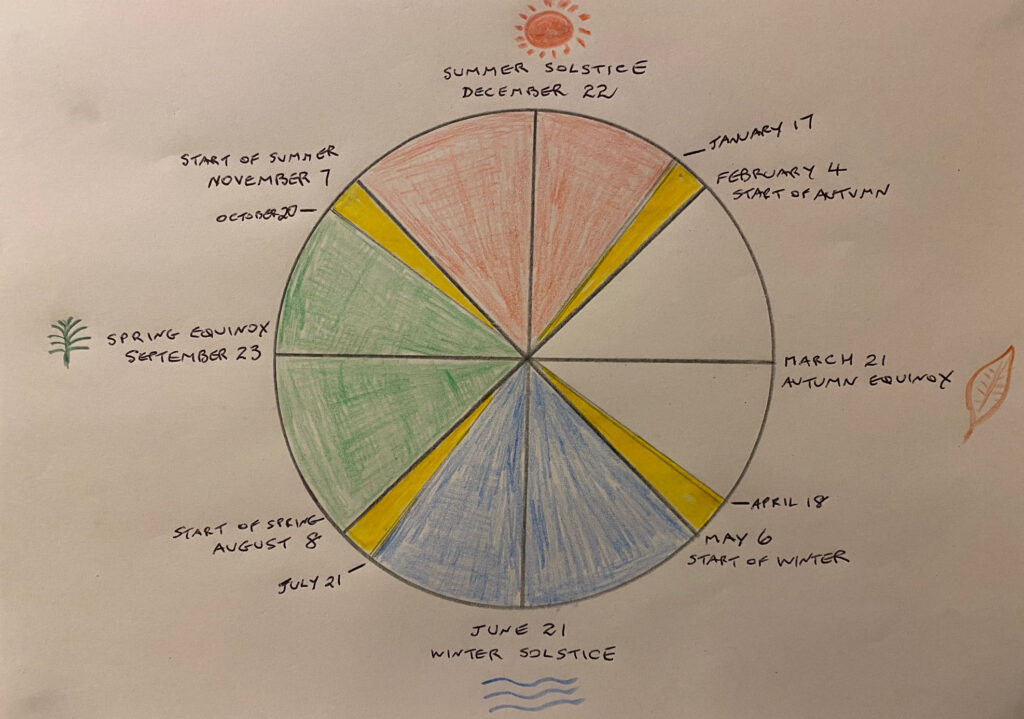 SUMMER SOLSTICE
DECEMBER 22
JANUARY 17
FEBRUARY 4
START OF AUTUMN
START OF SUMMER
NOVEMBER 7
OCTOBER 20
SPRING EQUINOX
SEPTEMBER 23
MARCH 21
AUTUMN EQUINOX
APRIL 18
MAY 6
START OF WINTER
START OF SPRING
AUGUST 8
JULY 21
JUNE 21
WINTER SOLSTICE